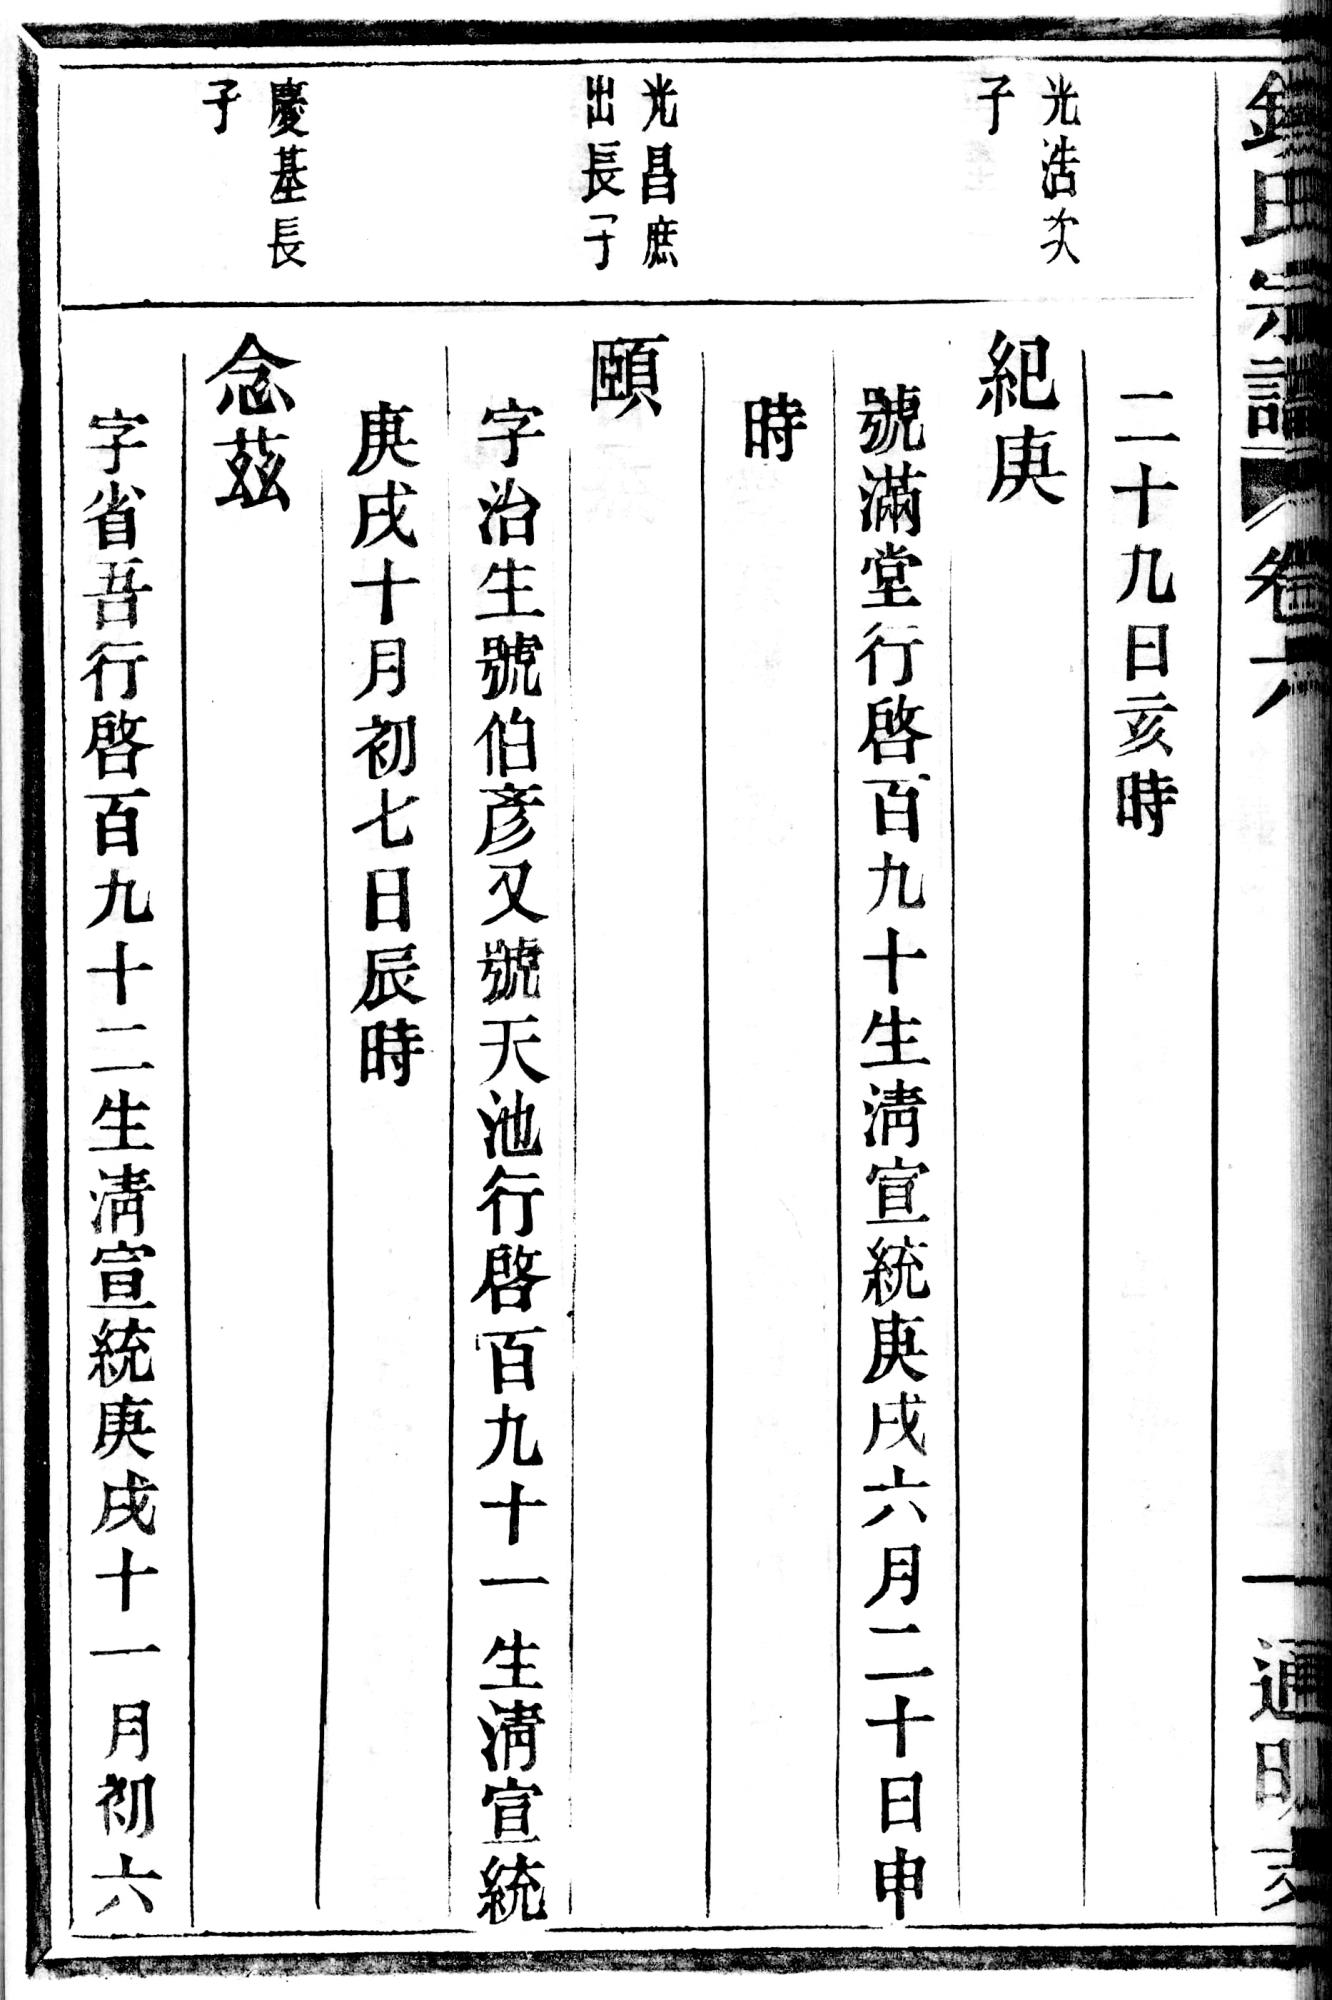 氏宗譜 卷六
二十九日亥時
光浩次
子
紀庚
號滿堂行啓百九十生淸宣統庚戌六月二十日申
時
光昌庶
出長子
頤
字治生號伯彥又號天池行啓百九十一生淸宣統
庚戌十月初七日辰時
慶基長
子
念茲
字省吾行啓百九十二生淸宣統庚戌十一月初六